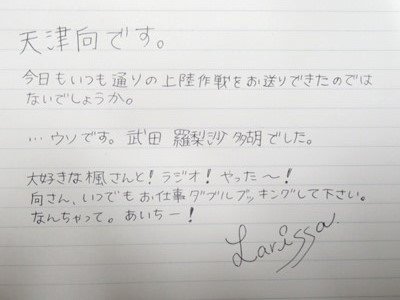 天津向です。
今日もいつも通りの上陸作戦をお送りできたのでは
ないでしょうか。
…ウソです。武田 羅梨沙多胡でした。
大好きな楓さんと!ラジオ!やった～!
向さん、いつでもお仕事ダブルブッキングして下さい。
なんちゃって。あいちー!
Larissa